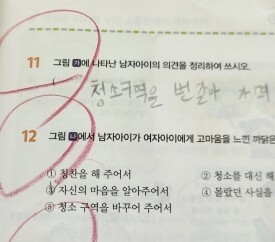 11 그림 가에 나타난 남자아이의 의견을 정리하여 쓰시오.
( 청소구역을 번갈아 가며
12 그림 나에서 남자아이가 여자아이에게 고마움을 느낀 까닭은
① 칭찬을 해 주어서
② 청소를 대신 해
③ 자신의 마음을 알아주어서
④ 몰랐던 사실을
⑤ 청소 구역을 바꾸어 주어서